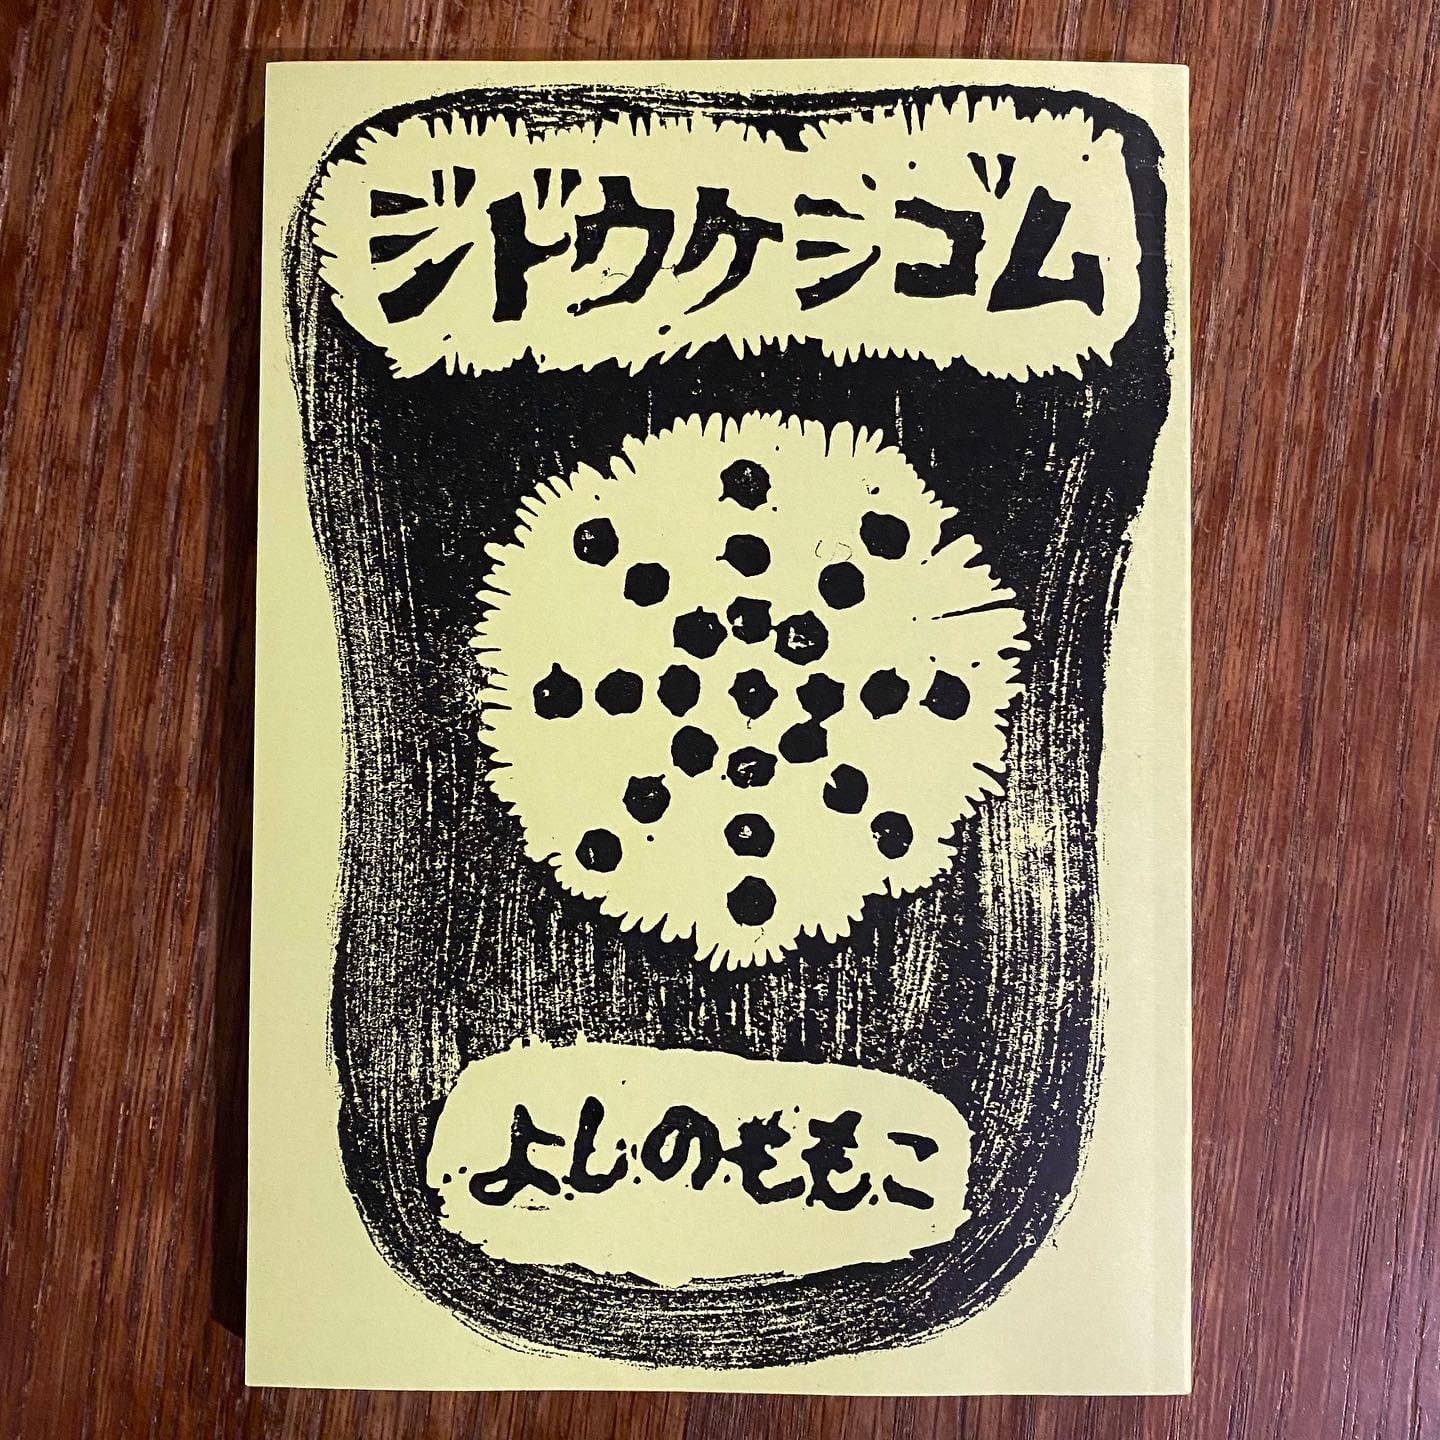 ジドウケシゴム
よしのももこ